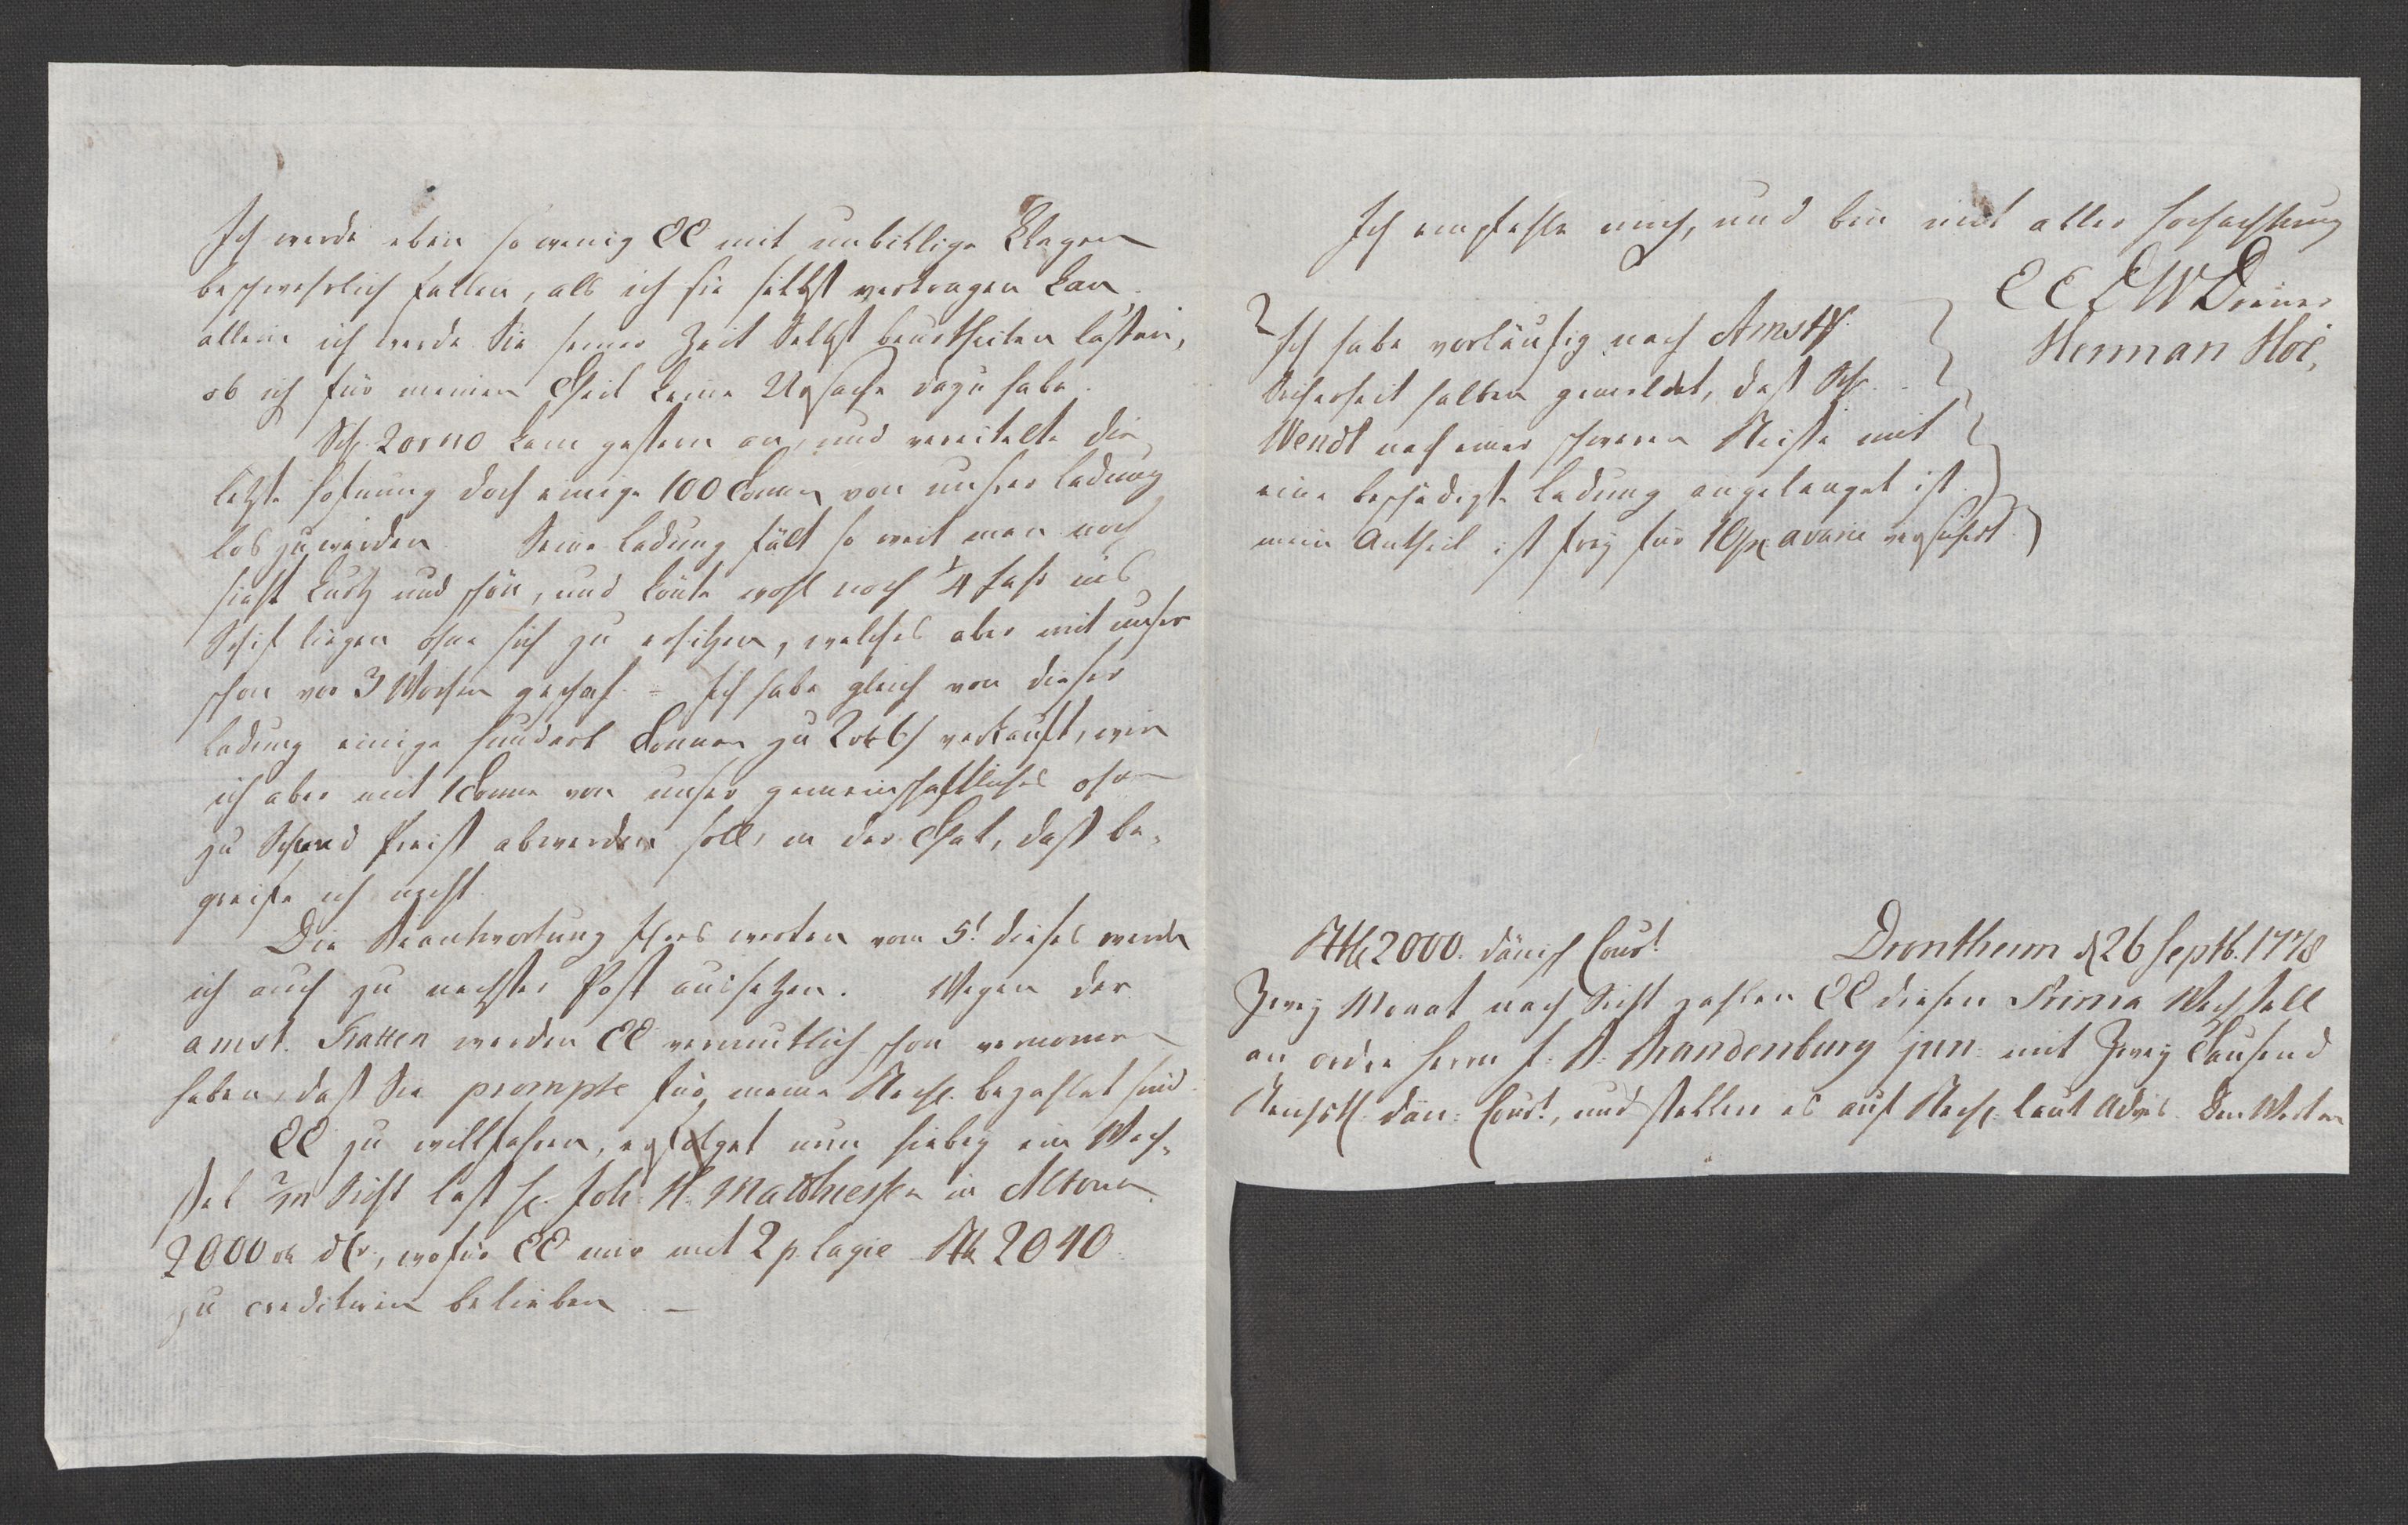 Ich werde eben so wenig EE mit unbillige Klagen
beschwehrlich fallen, als ich sie selbst vertragen kan
allein ich werde Sie seiner Zeit Selbst beurtheilen lassen,
ob ich für meinen Theil keine Ursache dazu habe.
Sch Zorno kam gestern an, und vereitelte die
letzte Hofnung doch einige 100 Tonnen von unser Ladung
los zu werden. Seine Ladung fält so weit man noch
sieht kurtz und schön, und könte wohl noch 1/4 Jahr ins
Schif liegen ohne sich zu erhitzen, welches aber mit unser
schon vor 3 Wochen geschah. Ich habe gleich von dieser
Ladung einige hundert Tonnen zu 2 6 verkauft, wie
ich aber mit 1 Tonne von unser gemeinschaftliches ohne
zu Schand Preiß abwerden soll, in der That, daß be-
greife ich nicht.
Die Beantwortung Ihres werten vom 5t dieses werde
ich auch zu nechster Post aussetzen. Wegen der
amst. Tratten werden EE vermutlich schon vernomen
haben, daß Sie prompte für meine Rech. bezahlet sind.
EE zu willfahren, erfolget nun hiebey ein Wech-
sel 2/m Sicht last H. Joh. H. Matthiessen in Altona
2000 dC, wofür EE mir mit 2 p lagie Rth 2040
zu creditiren belieben —
Ich empfehle mich, und bin mit aller Hochachtung
EE EW Diener
Herman Hoë,
Ich habe vorläufig nach Amst
Sicherheit halben gemeldet, daß Sch.
Wendt nach einer schweren Reise mit
eine beschädigte Ladung angelanget ist.
mein Antheil ist frey für 10 p avarie versichert.
Rth 2000. dänisch Cour.t Drontheim d 26 Septb. 1778
Zwey Monat nach Sicht zahlen EE diesen Prima Wechsell
an ordre Herrn J: D: Brandenburg jun: mit Zwey Tausend
Reichsth. dän: Cour.t, und stellen es auf Rech. laut Advis. Den Werten